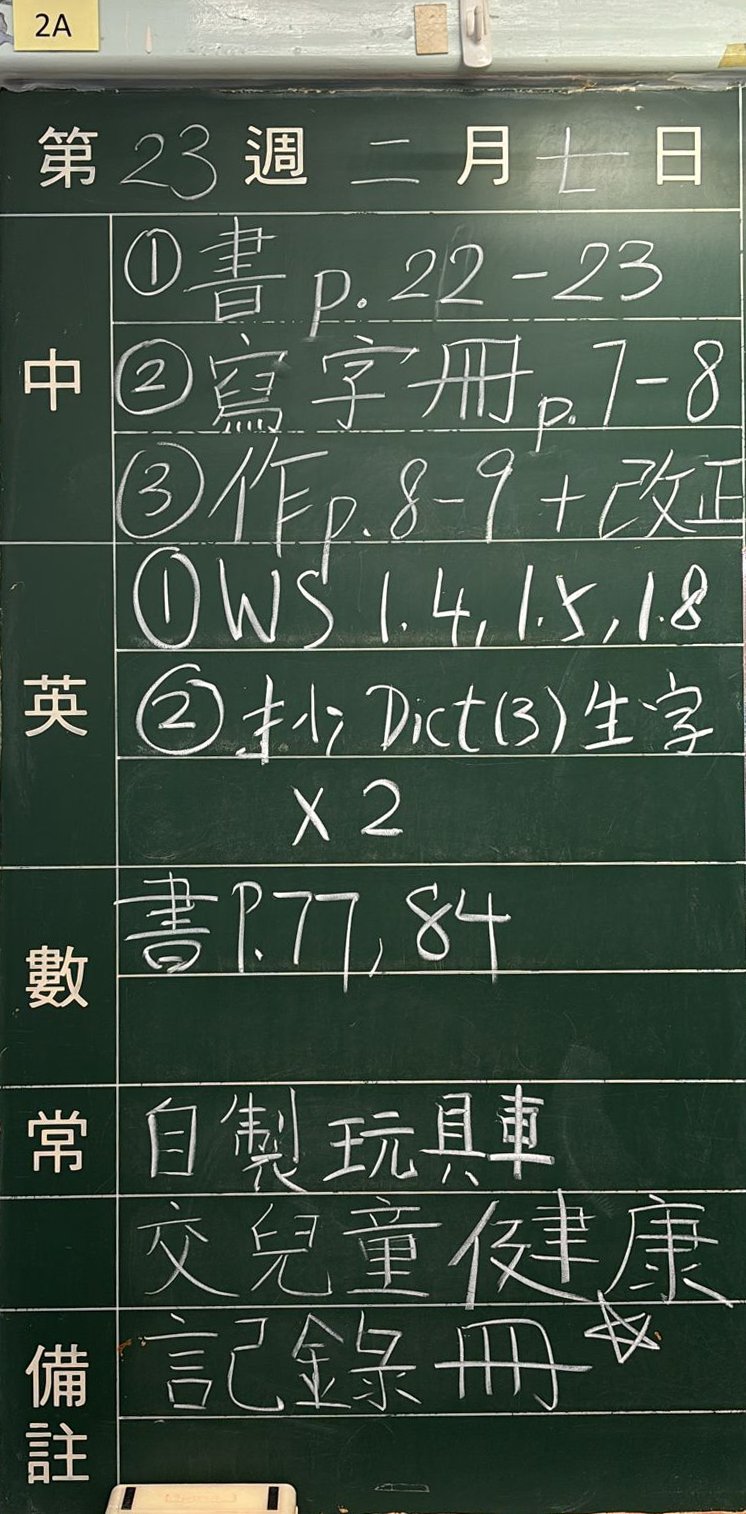 2A
第23週二月七日
中
①書p.22-23
②寫字冊p.7-8
③作p.8-9+改正
英
①WS 1.4, 1.5, 1.8
②抄Dict(3)生字
x2
數
書P.77, 84
常
自製玩具車
交兒童健康
備註
記錄冊☆